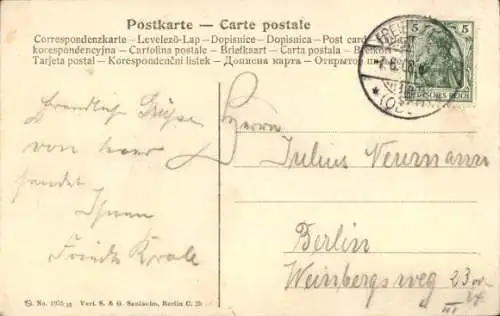 Postkarte — Carte postale
Correspondenzkarte — Levelező-Lap — Dopisnice — Dopisnica — Post card
korespondencyjna — Cartolina postale — Briefkaart — Carta postala — Brefkort
Tarjeta postal — Korespondenční listek — Дописна карта — Открытое
5 5
DEUTSCHES REICH
FREI
Freundliche Grüße
von hier
sendet
Ihnen
Herrn
Julius Neumann
Berlin
Weinbergsweg 23
III
No. 1955 Verl. S. & G. Saulsohn, Berlin C. 25